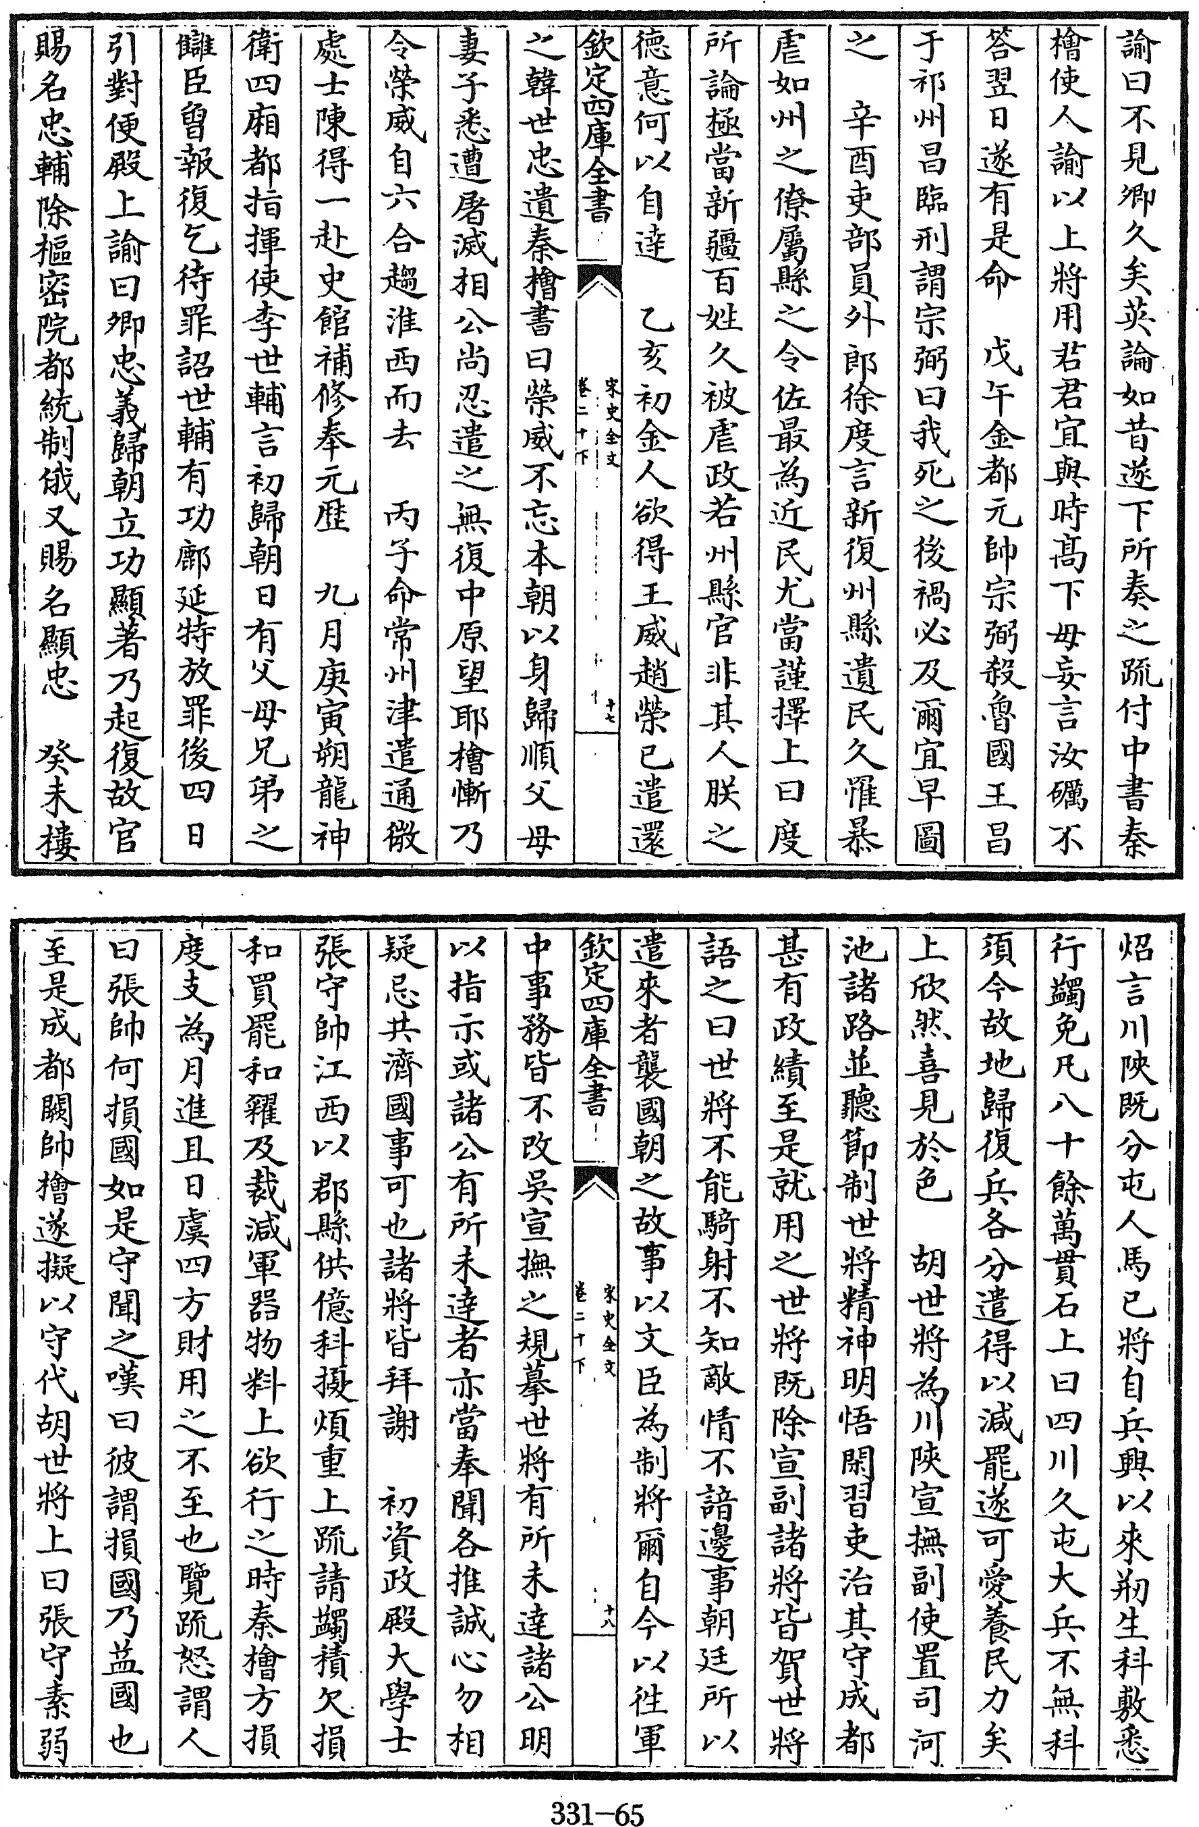 諭曰不見卿久矣英論如昔遂下所奏之疏付中書秦
檜使人諭以上將用若君宜與時髙下毋妄言汝礪不
答翌日遂有是命　戊午金都元帥宗弼殺魯國王昌
于祁州昌臨刑謂宗弼曰我死之後禍必及爾宜早圖
之　辛酉吏部員外郎徐度言新復州縣遺民久罹暴
虐如州之僚屬縣之令佐最為近民尤當謹擇上曰度
所論極當新疆百姓久被虐政若州縣官非其人朕之
德意何以自達　乙亥初金人欲得王威趙榮已遣還
欽定四庫全書
宋史全文
卷二十下
十七
之韓世忠遺秦檜書曰榮威不忘本朝以身歸順父母
妻子悉遭屠滅相公尚忍遣之無復中原望耶檜慚乃
令榮威自六合趨淮西而去　丙子命常州津遣通微
處士陳得一赴史館補修奉元歴　九月庚寅朔龍神
衛四廂都指揮使李世輔言初歸朝日有父母兄弟之
讎臣曾報復乞待罪詔世輔有功鄜延特放罪後四日
引對便殿上諭曰卿忠義歸朝立功顯著乃起復故官
賜名忠輔除樞密院都統制俄又賜名顯忠　癸未樓
炤言川陝既分屯人馬已將自兵興以來剏生科敷悉
行蠲免凡八十餘萬貫石上曰四川久屯大兵不無科
須今故地歸復兵各分遣得以減罷遂可愛養民力矣
上欣然喜見於色　胡世將為川陝宣撫副使置司河
池諸路並聽節制世將精神明悟閑習吏治其守成都
甚有政績至是就用之世將既除宣副諸將皆賀世將
語之曰世將不能騎射不知敵情不諳邊事朝廷所以
遣來者襲國朝之故事以文臣為制將爾自今以徃軍
欽定四庫全書
宋史全文
卷二十下
十八
中事務皆不改吳宣撫之規摹世將有所未達諸公明
以指示或諸公有所未達者亦當奉聞各推誠心勿相
疑忌共濟國事可也諸將皆拜謝　初資政殿大學士
張守帥江西以郡縣供億科擾煩重上疏請蠲積欠損
和買罷和糴及裁減軍器物料上欲行之時秦檜方損
度支為月進且日虞四方財用之不至也覽疏怒謂人
曰張帥何損國如是守聞之嘆曰彼謂損國乃益國也
至是成都闕帥檜遂擬以守代胡世將上曰張守素弱
331-65